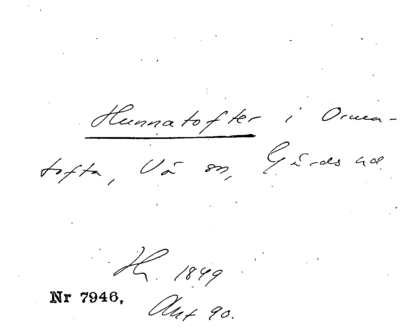 Hunnatofter i Orma-
tofta, Vä sn, Gärds hd.
Hr. 1849
Nr 7946.
Akt 90.